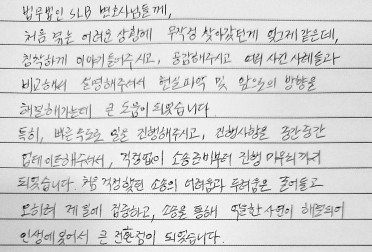 법무법인 SLB 변호사님들께,
처음 겪는 어려운 상황에 무작정 찾아갔던게 엊그제 같은데,
침착하게 이야기 들어주시고, 공감해주시고 여러 사건 사례들과
비교해서 설명해주셔서 현실파악 및 앞으로의 방향을
해결해가는데 큰 도움이 되었습니다.
특히, 빠른속도로 일을 진행해주시고, 진행사항을 중간중간
업데이트해주셔서, 걱정없이 소송준비부터 진행 마무리까지
되었습니다. 처음 걱정했던 소송의 어려움과 두려움은 줄어들고
오히려 제 일에 집중하고, 소송을 통해 억울한 사연이 해결되어
인생에 있어서 큰 전환점이 되었습니다.